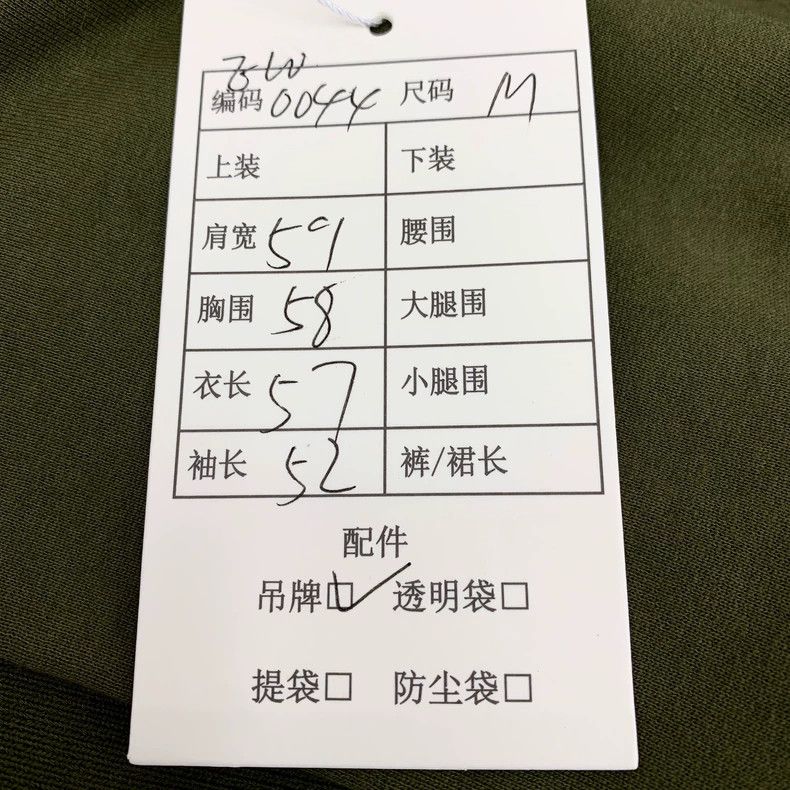 编码 0044 尺码 M
上装 下装
肩宽 59 腰围
胸围 58 大腿围
衣长 57 小腿围
袖长 52 裤/裙长
配件
吊牌□✓ 透明袋□
提袋□ 防尘袋□